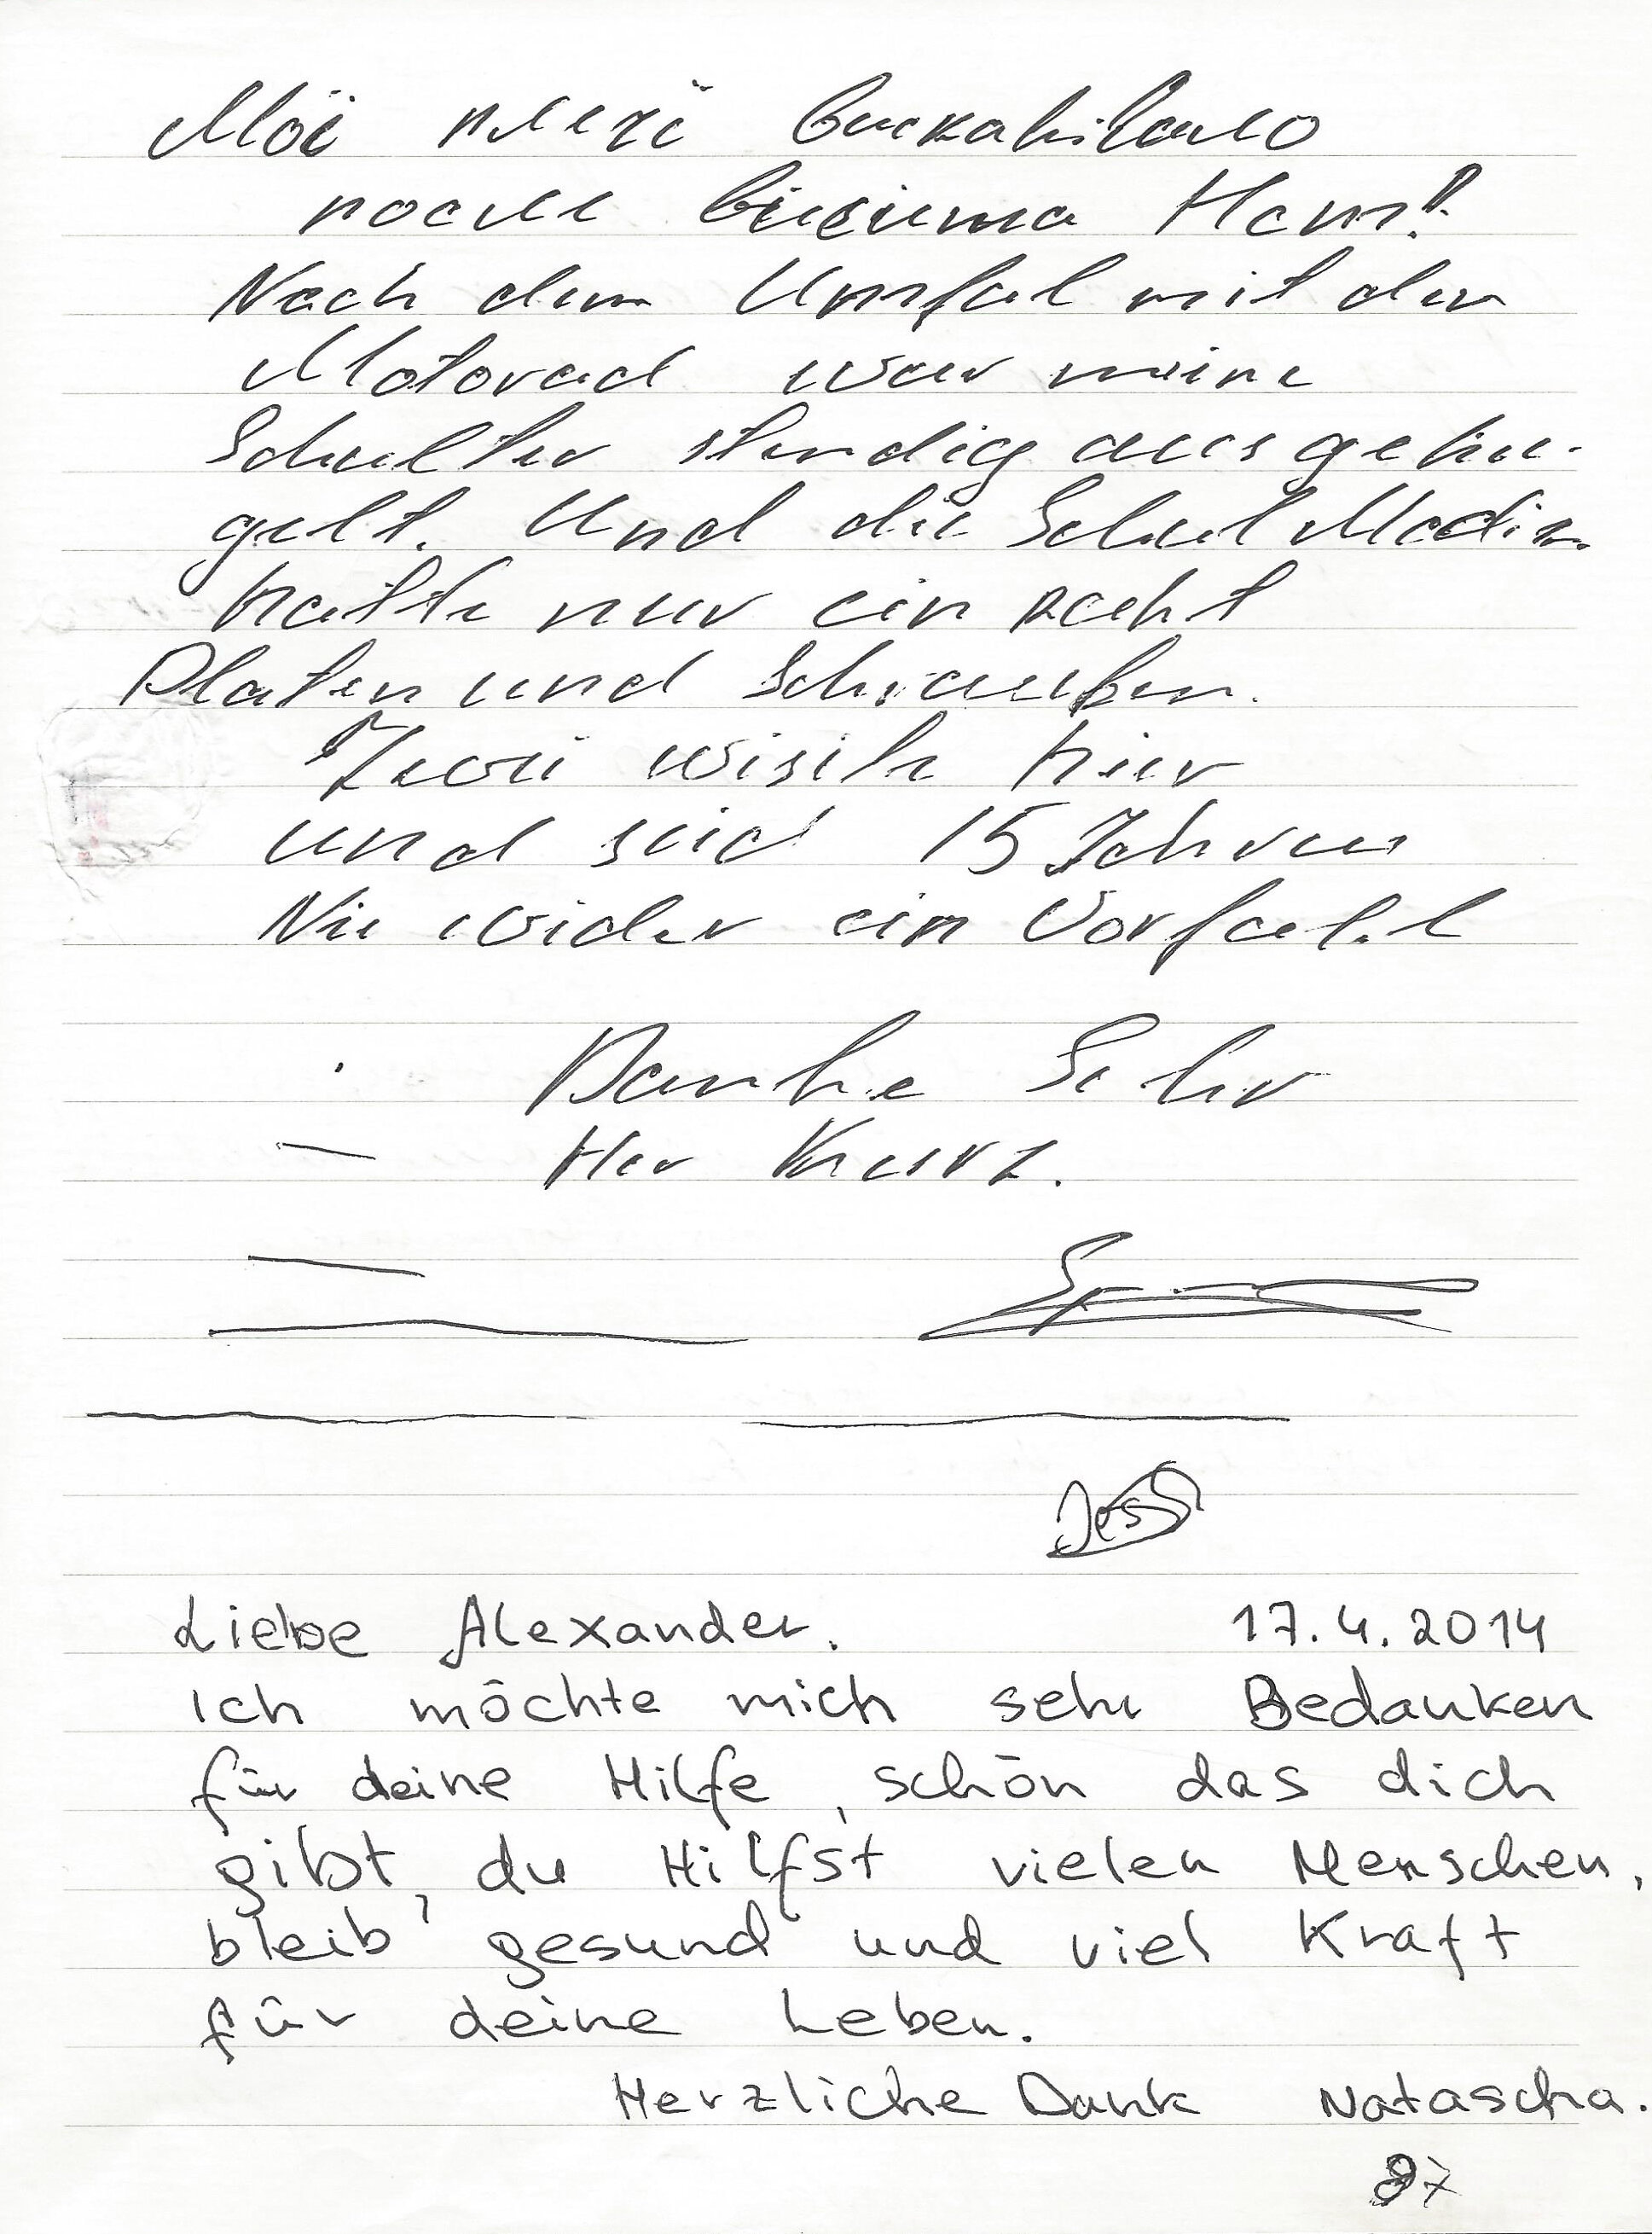 Мої плечї вискакивало
после визита Нет!!
Nach dem Umfal mit der
Motorad war meine
Schulter stendig ausgehu-
gelt. Und die Schul Medizin
hatte nur ein recht
Platen und Schrauben.
Zwei wisite hier
und seid 15 Jahren
Nie wider ein Vorfall
Danke Sehr
Her Kurz.
Jess
Liebe Alexander. 17.4.2014
ich möchte mich sehr Bedanken
für deine Hilfe, schön das dich
gibt, du Hilfst vielen Menschen,
bleib gesund und viel Kraft
für deine Leben.
Herzliche Dank Natascha.